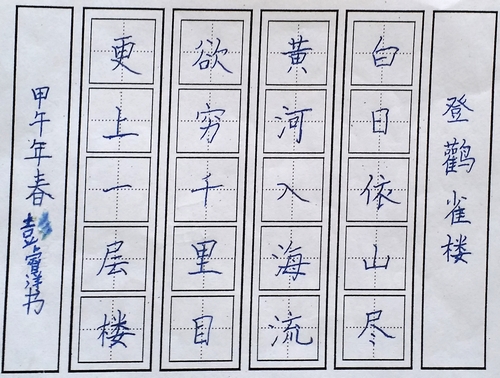 登鹳雀楼
白日依山尽
黄河入海流
欲穷千里目
更上一层楼
甲午年春 彭寶洋书